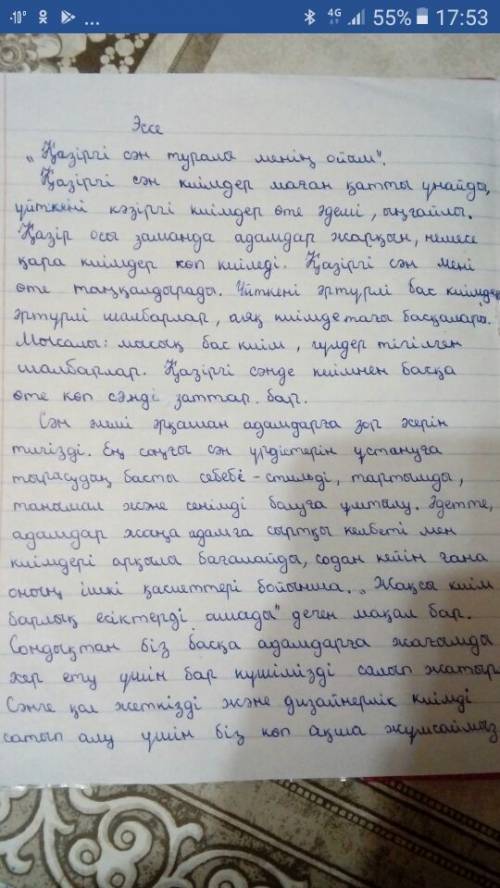 -10° ... 4G 55% 17:53
Эссе
„Қазіргі сән туралы менің ойым".
Қазіргі сән киімдер маған қатты ұнайды,
үйткені кәзіргі киімдер өте әдемі, ыңғайлы.
Қазір осы заманда адамдар жарқын, немесе
қара киімдер көп киіледі. Қазіргі сән мені
өте таңқалдырады. Үйткені әртүрлі бас киімдер
әртүрлі шалбарлар, аяқ киімде тағы басқалары.
Мысалы: мысық бас киім, гүлдер тігілген
шалбарлар. Қазіргі сәнде киімнен басқа
өте көп сәнді заттар бар.
Сән әрқашан адамдарға зор
тигізді. Ең соңғы сән үрдістерін ұстануға
тырасудың басты себебі - стильді, тартымды,
танымал және сенімді болуға ұмтылу. Әдетте,
адамдар жаңа адамға сыртқы келбеті мен
киімдері арқылы бағалайды, содан кейін ғана
оның ішкі қасиеттері бойынша. „Жақсы киім
барлық есіктерді ашады" деген мақал бар.
Сондықтан біз басқа адамдарға жағымды
әсер ету үшін бар күшімізді салып жатыр.
Сәнге қол жеткізді және дизайнерлік киімді
сатып алу үшін біз көп ақша жұмсаймыз